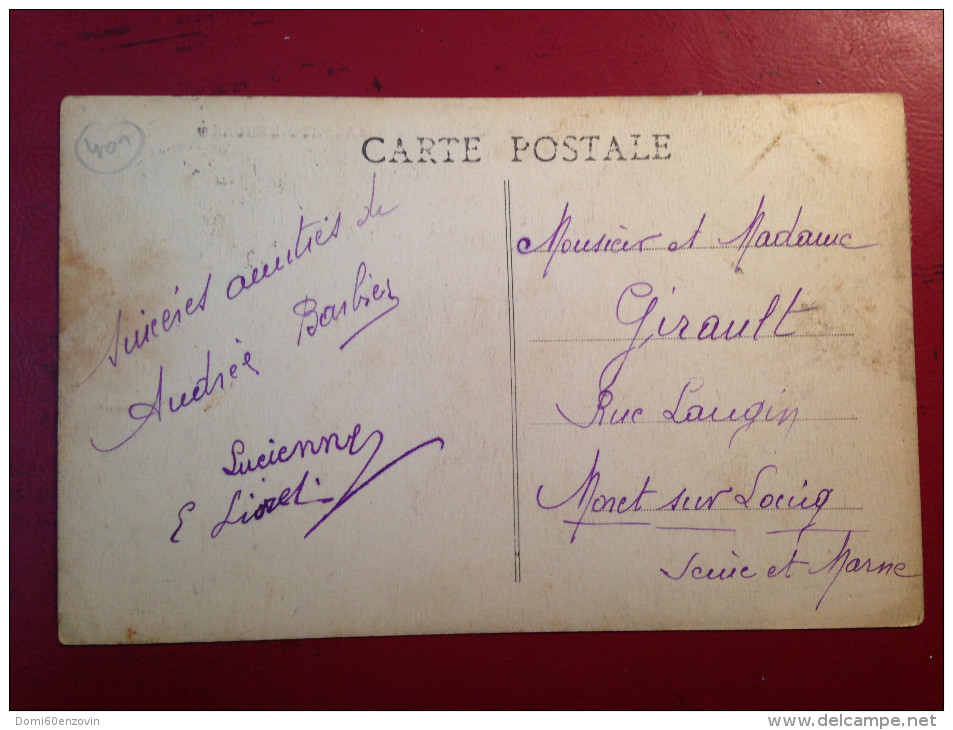 401
CARTE POSTALE
Sincères amitiés de
Andrée Barbier
Lucienne
E Lioret
Monsieur et Madame
Girault
Rue Laugin
Moret sur Loing
Seine et Marne
Domi60enzovin
www.delcampe.net